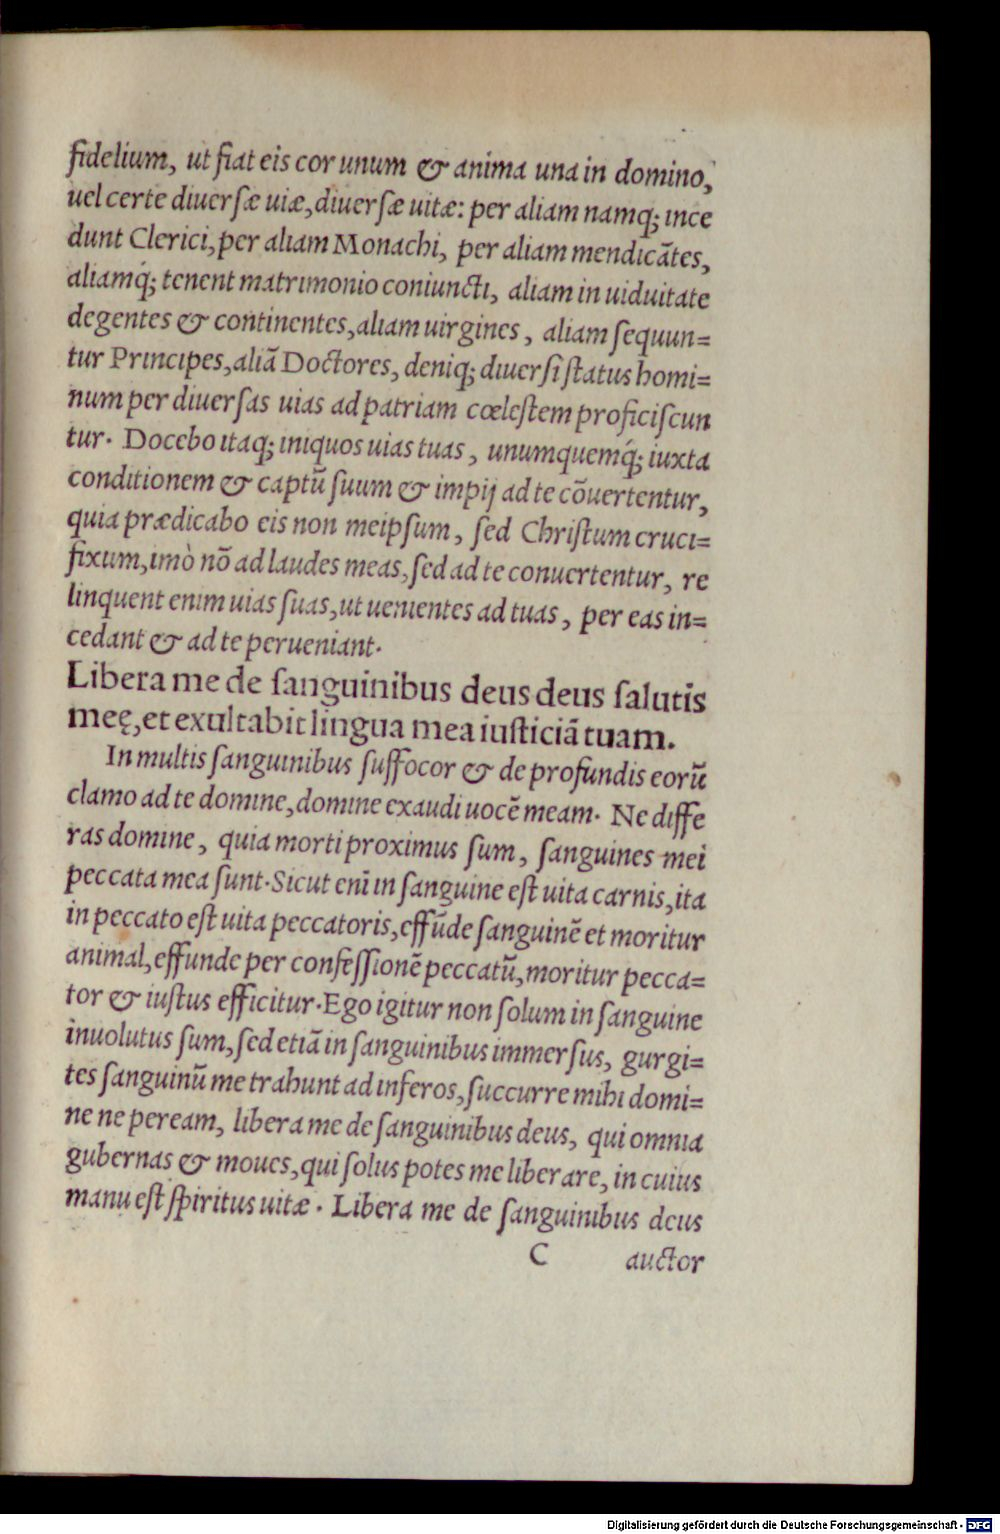 fidelium, ut fiat eis cor unum & anima una in domino,
uel certe diuersæ uiæ, diuersæ uitæ: per aliam namq; ince
dunt Clerici, per aliam Monachi, per aliam mendicātes,
aliamq́; tenent matrimonio coniuncti, aliam in uiduitate
degentes & continentes, aliam uirgines, aliam sequun=
tur Principes, aliā Doctores, deniq; diuersi status homi=
num per diuersas uias ad patriam cœlestem proficiscun
tur. Docebo itaq; iniquos uias tuas, unumquemq́; iuxta
conditionem & captū suum & impij ad te cōuertentur,
quia prædicabo eis non meipsum, sed Christum cruci=
fixum, imò nō ad laudes meas, sed ad te conuertentur, re
linquent enim uias suas, ut uenientes ad tuas, per eas in=
cedant & ad te perueniant.
Libera me de sanguinibus deus deus salutis
meę, et exultabit lingua mea iusticiā tuam.
In multis sanguinibus suffocor & de profundis eorū
clamo ad te domine, domine exaudi uocē meam. Ne diffe
ras domine, quia morti proximus sum, sanguines mei
peccata mea sunt. Sicut enī in sanguine est uita carnis, ita
in peccato est uita peccatoris, effūde sanguinē et moritur
animal, effunde per confessionē peccatū, moritur pecca=
tor & iustus efficitur. Ego igitur non solum in sanguine
inuolutus sum, sed etiā in sanguinibus immersus, gurgi=
tes sanguinū me trahunt ad inferos, succurre mihi domi=
ne ne peream, libera me de sanguinibus deus, qui omnia
gubernas & moues, qui solus potes me liberare, in cuius
manu est spiritus uitæ. Libera me de sanguinibus deus
C auctor
Digitalisierung gefördert durch die Deutsche Forschungsgemeinschaft - DFG